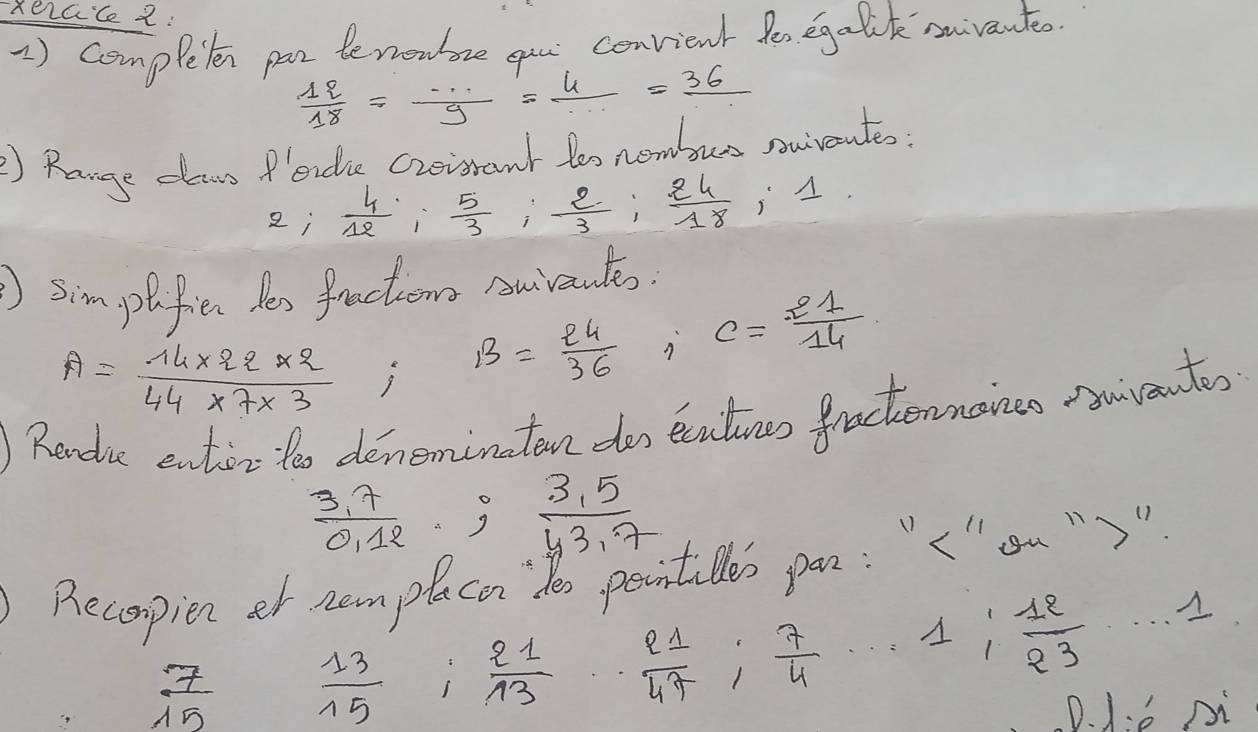 xercice 2:
1) Compléter par le nombre qui convient les égalité suivantes.
12/18 = .../9 = 4/... = 36/
2) Range dans l'ordre croissant les nombres suivantes:
2 ; 4/12 ; 5/3 ; 2/3 ; 24/18 ; 1.
) Simplifier les fractions suivantes:
A = 14×22×2/44×7×3 ; B = 24/36 ; C = 21/14
) Rendre entier les dénominateur des écritures fractionnaires suivantes:
3,7/0,12 ; 3,5/43,7
) Recopier et remplacer les pointillés par: "<" ou ">".
7/15 13/15 ; 21/13 .. 21/47 ; 7/4 ... 1 ; 12/23 ... 1
si